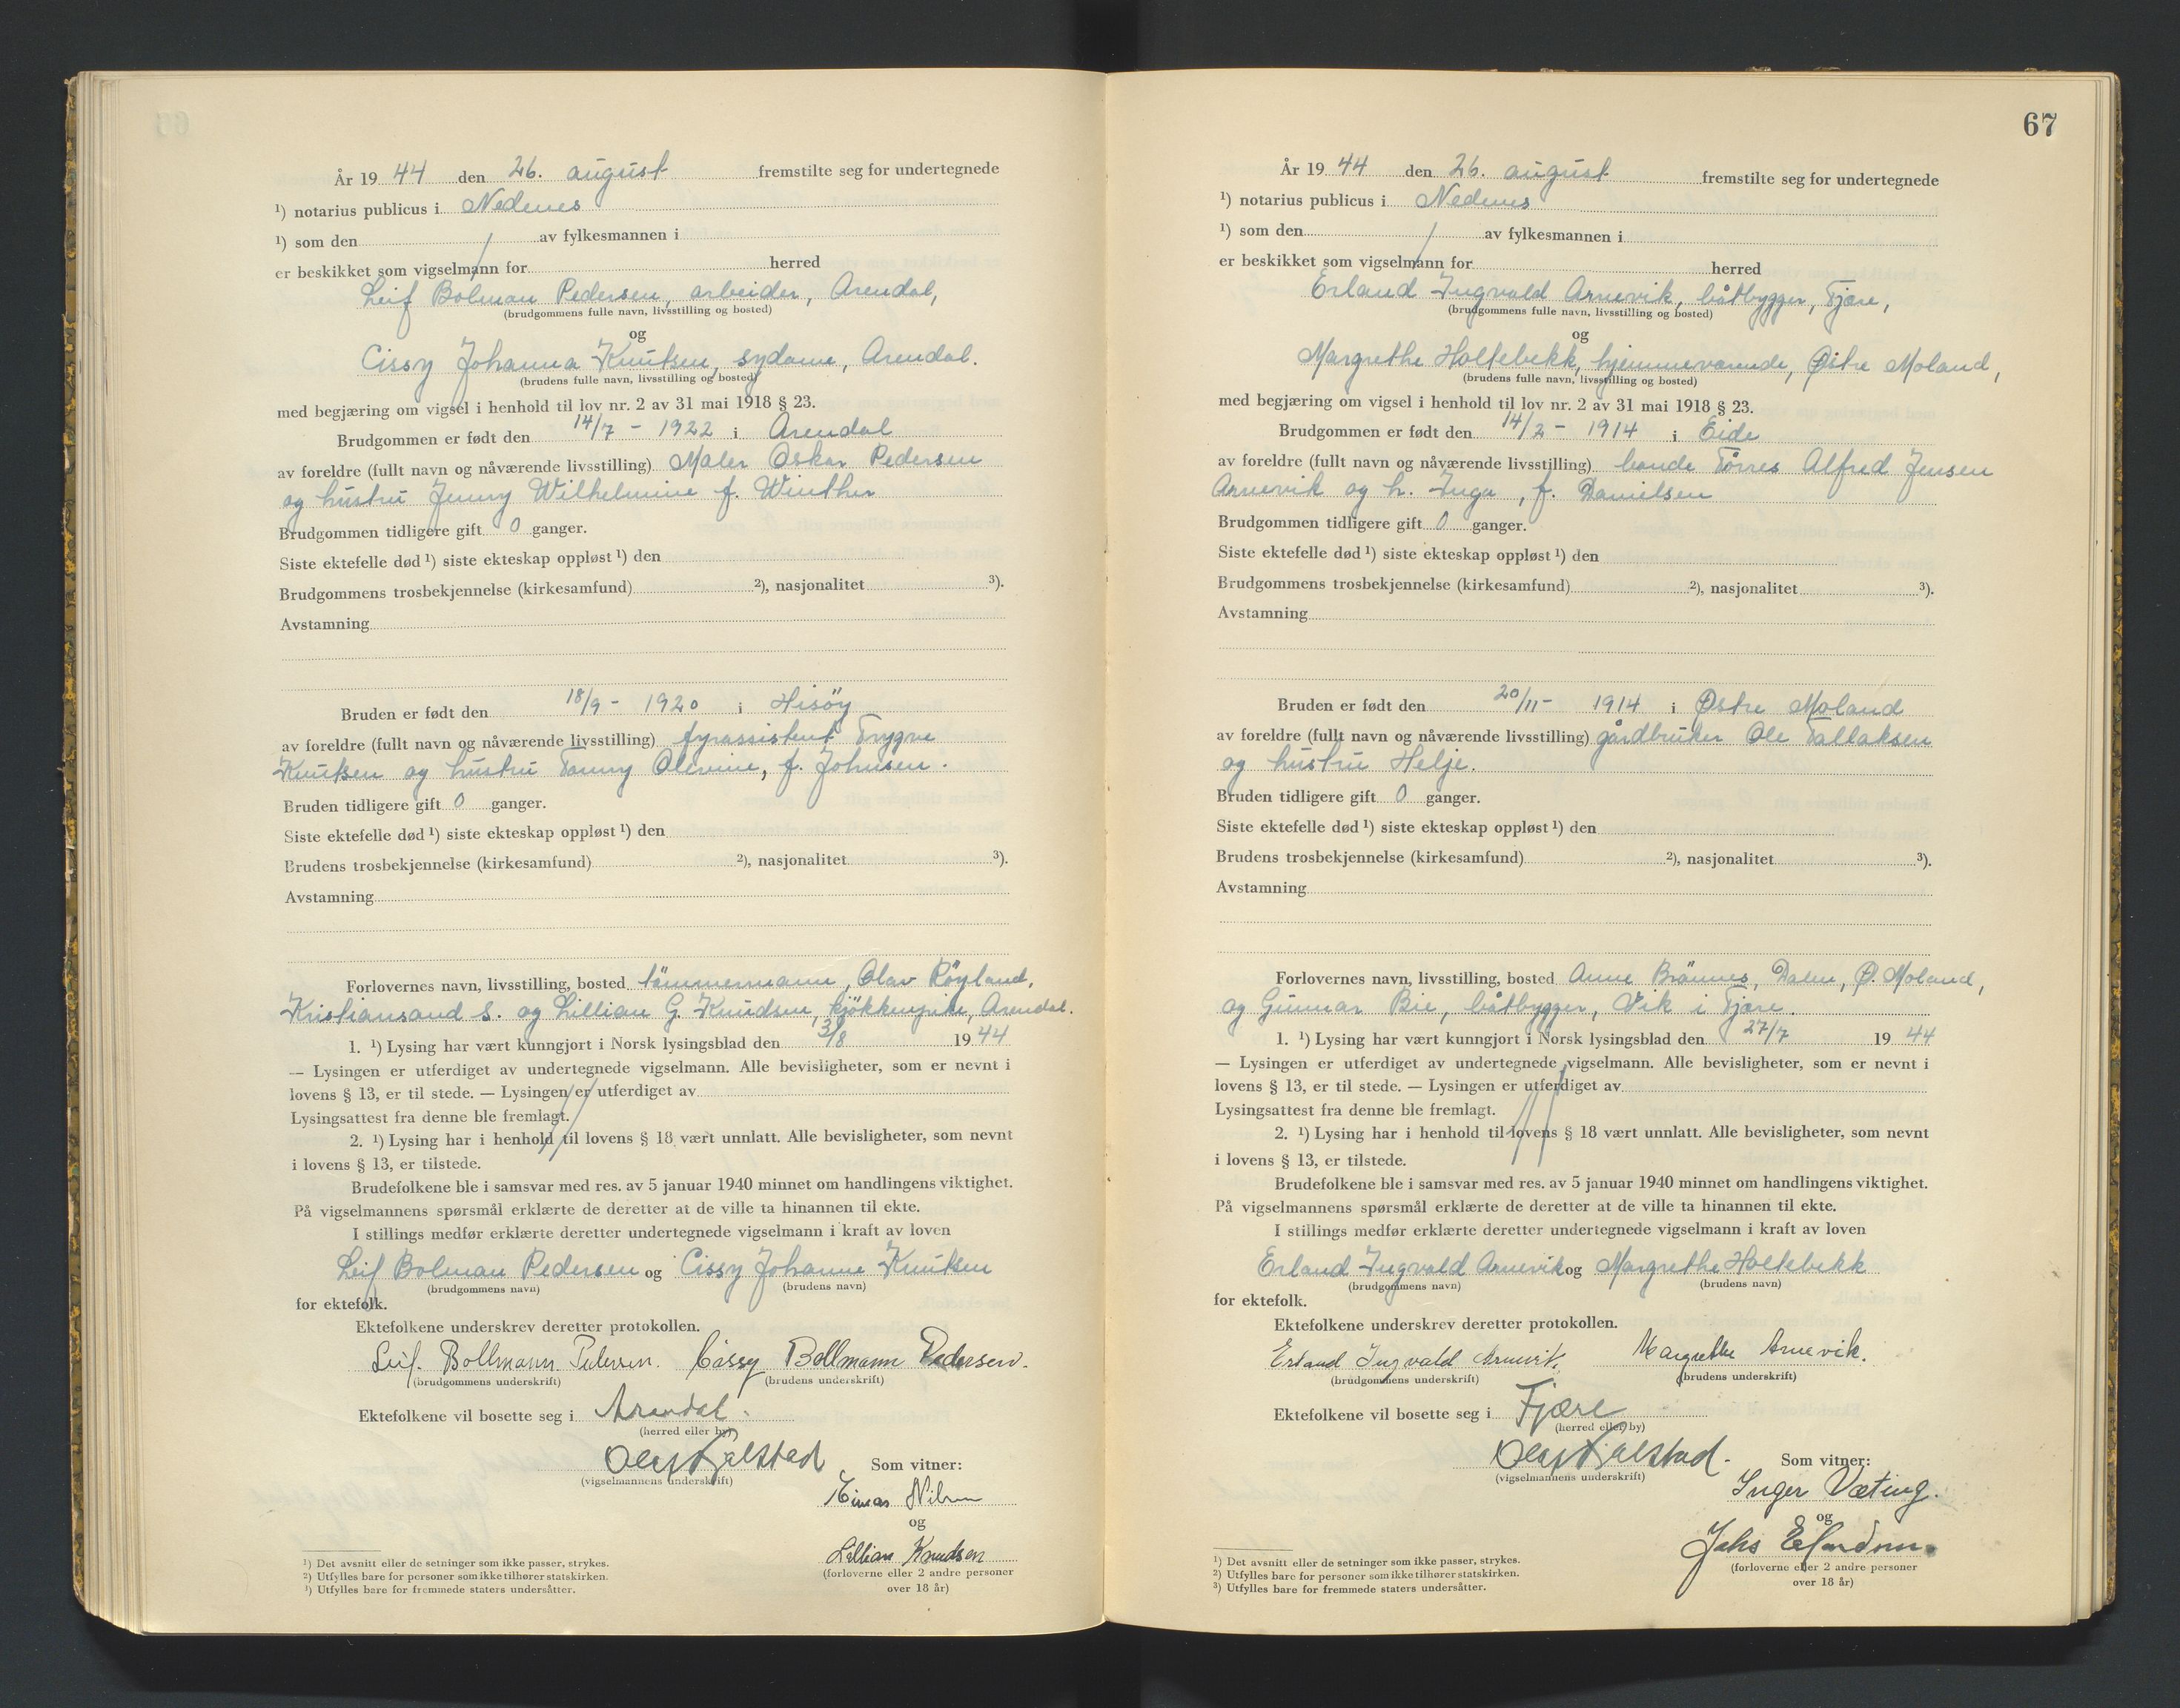 År 19 44 den 26. august fremstilte seg for undertegnede
¹) notarius publicus i Nedenes
¹) som den av fylkesmannen i
er beskikket som vigselmann for herred
Leif Bolman Pedersen, arbeider, Arendal,
(brudgommens fulle navn, livsstilling og bosted)
og
Cissy Johanna Knutsen, sydame, Arendal.
(brudens fulle navn, livsstilling og bosted)
med begjæring om vigsel i henhold til lov nr. 2 av 31 mai 1918 § 23.
Brudgommen er født den 14/7 - 1922 i Arendal
av foreldre (fullt navn og nåværende livsstilling) Maler Oskar Pedersen
og hustru Jenny Wilhelmine f. Winther
Brudgommen tidligere gift 0 ganger.
Siste ektefelle død ¹) siste ekteskap oppløst ¹) den
Brudgommens trosbekjennelse (kirkesamfund) ²), nasjonalitet ³).
Avstamning
Bruden er født den 18/9 - 1920 i Hisöy
av foreldre (fullt navn og nåværende livsstilling) fyrassistent Trygve
Knutsen og hustru Tanny Olevine, f. Johnsen.
Bruden tidligere gift 0 ganger.
Siste ektefelle død ¹) siste ekteskap oppløst ¹) den
Brudens trosbekjennelse (kirkesamfund) ²), nasjonalitet ³).
Avstamning
Forlovernes navn, livsstilling, bosted tömmermann, Olav Röyland,
Kristiansand S. og Lillian G. Knudsen, kjökkenpike, Arendal.
1. ¹) Lysing har vært kunngjort i Norsk lysingsblad den 3/8 19 44
— Lysingen er utferdiget av undertegnede vigselmann. Alle bevisligheter, som er nevnt i
lovens § 13, er til stede. — Lysingen er utferdiget av
Lysingsattest fra denne ble fremlagt.
2. ¹) Lysing har i henhold til lovens § 18 vært unnlatt. Alle bevisligheter, som nevnt
i lovens § 13, er tilstede.
Brudefolkene ble i samsvar med res. av 5 januar 1940 minnet om handlingens viktighet.
På vigselmannens spørsmål erklærte de deretter at de ville ta hinannen til ekte.
I stillings medfør erklærte deretter undertegnede vigselmann i kraft av loven
Leif Bolman Pedersen og Cissy Johanne Knutsen
(brudgommens navn) (brudens navn)
for ektefolk.
Ektefolkene underskrev deretter protokollen.
Leif. Bollmann Pedersen. Cissy Bollmann Pedersen.
(brudgommens underskrift) (brudens underskrift)
Ektefolkene vil bosette seg i Arendal.
(herred eller by)
Olaf Fjalstad
(vigselmannens underskrift)
Som vitner:
Nilsen
og
Lillian Knudsen
(forloverne eller 2 andre personer
over 18 år)
¹) Det avsnitt eller de setninger som ikke passer, strykes.
²) Utfylles bare for personer som ikke tilhører statskirken.
³) Utfylles bare for fremmede staters undersåtter.
67
År 19 44 den 26. august fremstilte seg for undertegnede
¹) notarius publicus i Nedenes
¹) som den av fylkesmannen i
er beskikket som vigselmann for herred
Erland Ingvald Arnevik, båtbygger, Fjære,
(brudgommens fulle navn, livsstilling og bosted)
og
Margrethe Holtebekk, hjemmeværende, Østre Moland,
(brudens fulle navn, livsstilling og bosted)
med begjæring om vigsel i henhold til lov nr. 2 av 31 mai 1918 § 23.
Brudgommen er født den 14/2 - 1914 i Eide
av foreldre (fullt navn og nåværende livsstilling) bonde Tørres Alfred Jensen
Arnevik og h. Inga, f. Danielsen
Brudgommen tidligere gift 0 ganger.
Siste ektefelle død ¹) siste ekteskap oppløst ¹) den
Brudgommens trosbekjennelse (kirkesamfund) ²), nasjonalitet ³).
Avstamning
Bruden er født den 20/11- 1914 i Østre Moland
av foreldre (fullt navn og nåværende livsstilling) gårdbruker Ole Tallaksen
og hustru Helje.
Bruden tidligere gift 0 ganger.
Siste ektefelle død ¹) siste ekteskap oppløst ¹) den
Brudens trosbekjennelse (kirkesamfund) ²), nasjonalitet ³).
Avstamning
Forlovernes navn, livsstilling, bosted Anne Brännes, Dalen, Ø. Moland,
og Gunnar Bie, båtbygger, Vik i Fjære.
1. ¹) Lysing har vært kunngjort i Norsk lysingsblad den 27/7 19 44
— Lysingen er utferdiget av undertegnede vigselmann. Alle bevisligheter, som er nevnt i
lovens § 13, er til stede. — Lysingen er utferdiget av
Lysingsattest fra denne ble fremlagt.
2. ¹) Lysing har i henhold til lovens § 18 vært unnlatt. Alle bevisligheter, som nevnt
i lovens § 13, er tilstede.
Brudefolkene ble i samsvar med res. av 5 januar 1940 minnet om handlingens viktighet.
På vigselmannens spørsmål erklærte de deretter at de ville ta hinannen til ekte.
I stillings medfør erklærte deretter undertegnede vigselmann i kraft av loven
Erland Ingvald Arnevik og Margrethe Holtebekk
(brudgommens navn) (brudens navn)
for ektefolk.
Ektefolkene underskrev deretter protokollen.
Erland Ingvald Arnevik. Margrethe Arnevik.
(brudgommens underskrift) (brudens underskrift)
Ektefolkene vil bosette seg i Fjære
(herred eller by)
Olaf Fjalstad.
(vigselmannens underskrift)
Som vitner:
Inger Væting.
og
(forloverne eller 2 andre personer
over 18 år)
¹) Det avsnitt eller de setninger som ikke passer, strykes.
²) Utfylles bare for personer som ikke tilhører statskirken.
³) Utfylles bare for fremmede staters undersåtter.